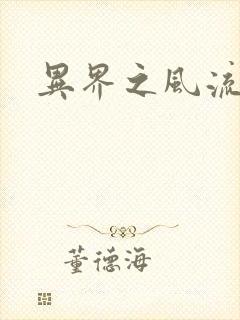 異界之風流
董德海